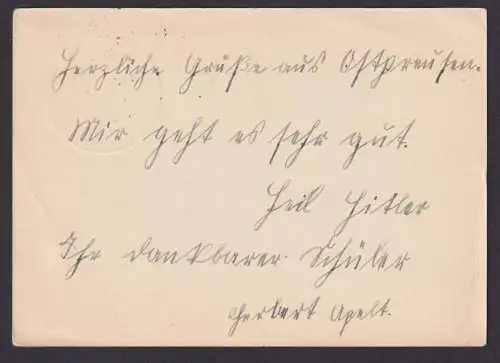 Herzliche Grüße aus Ostpreusen.
Mir geht es sehr gut.
Heil Hitler
Ihr dankbarer Schüler
Herbert Apelt.